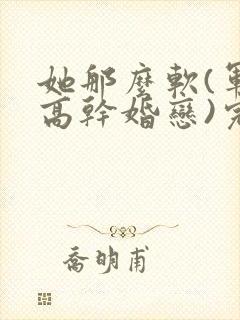 她那麼軟(軍
高幹婚戀)完
喬明甫